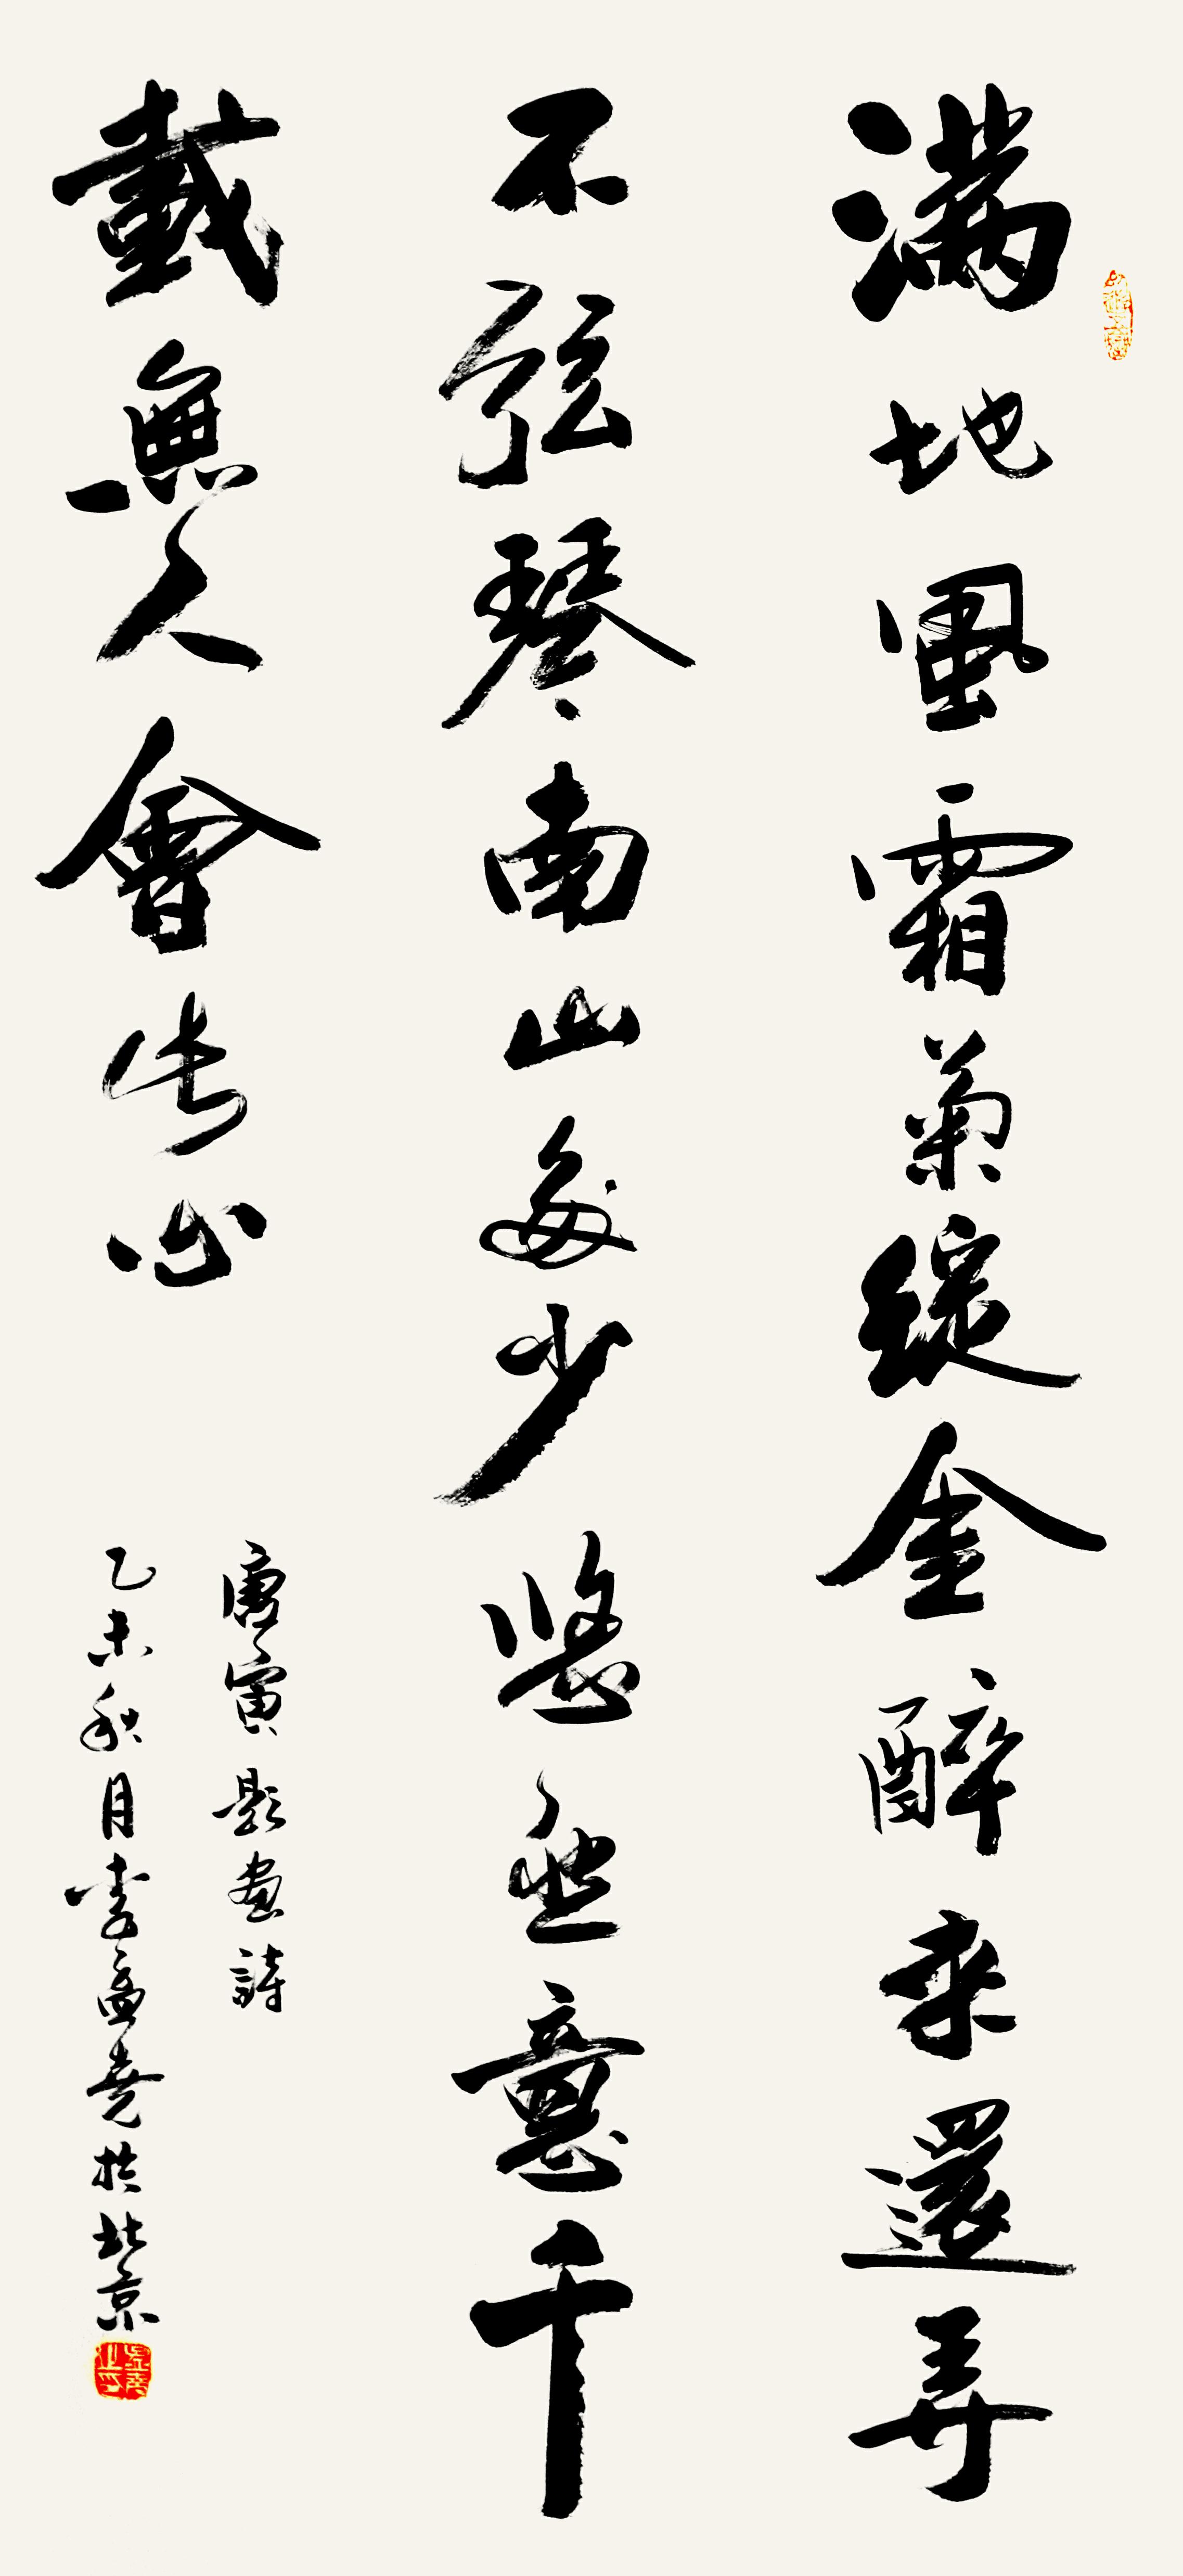 满地風霜菊綻金醉来還弄
不弦琴南山多少悠然意千
載無人會此心
唐寅題畫詩
乙未秋月李堯於北京